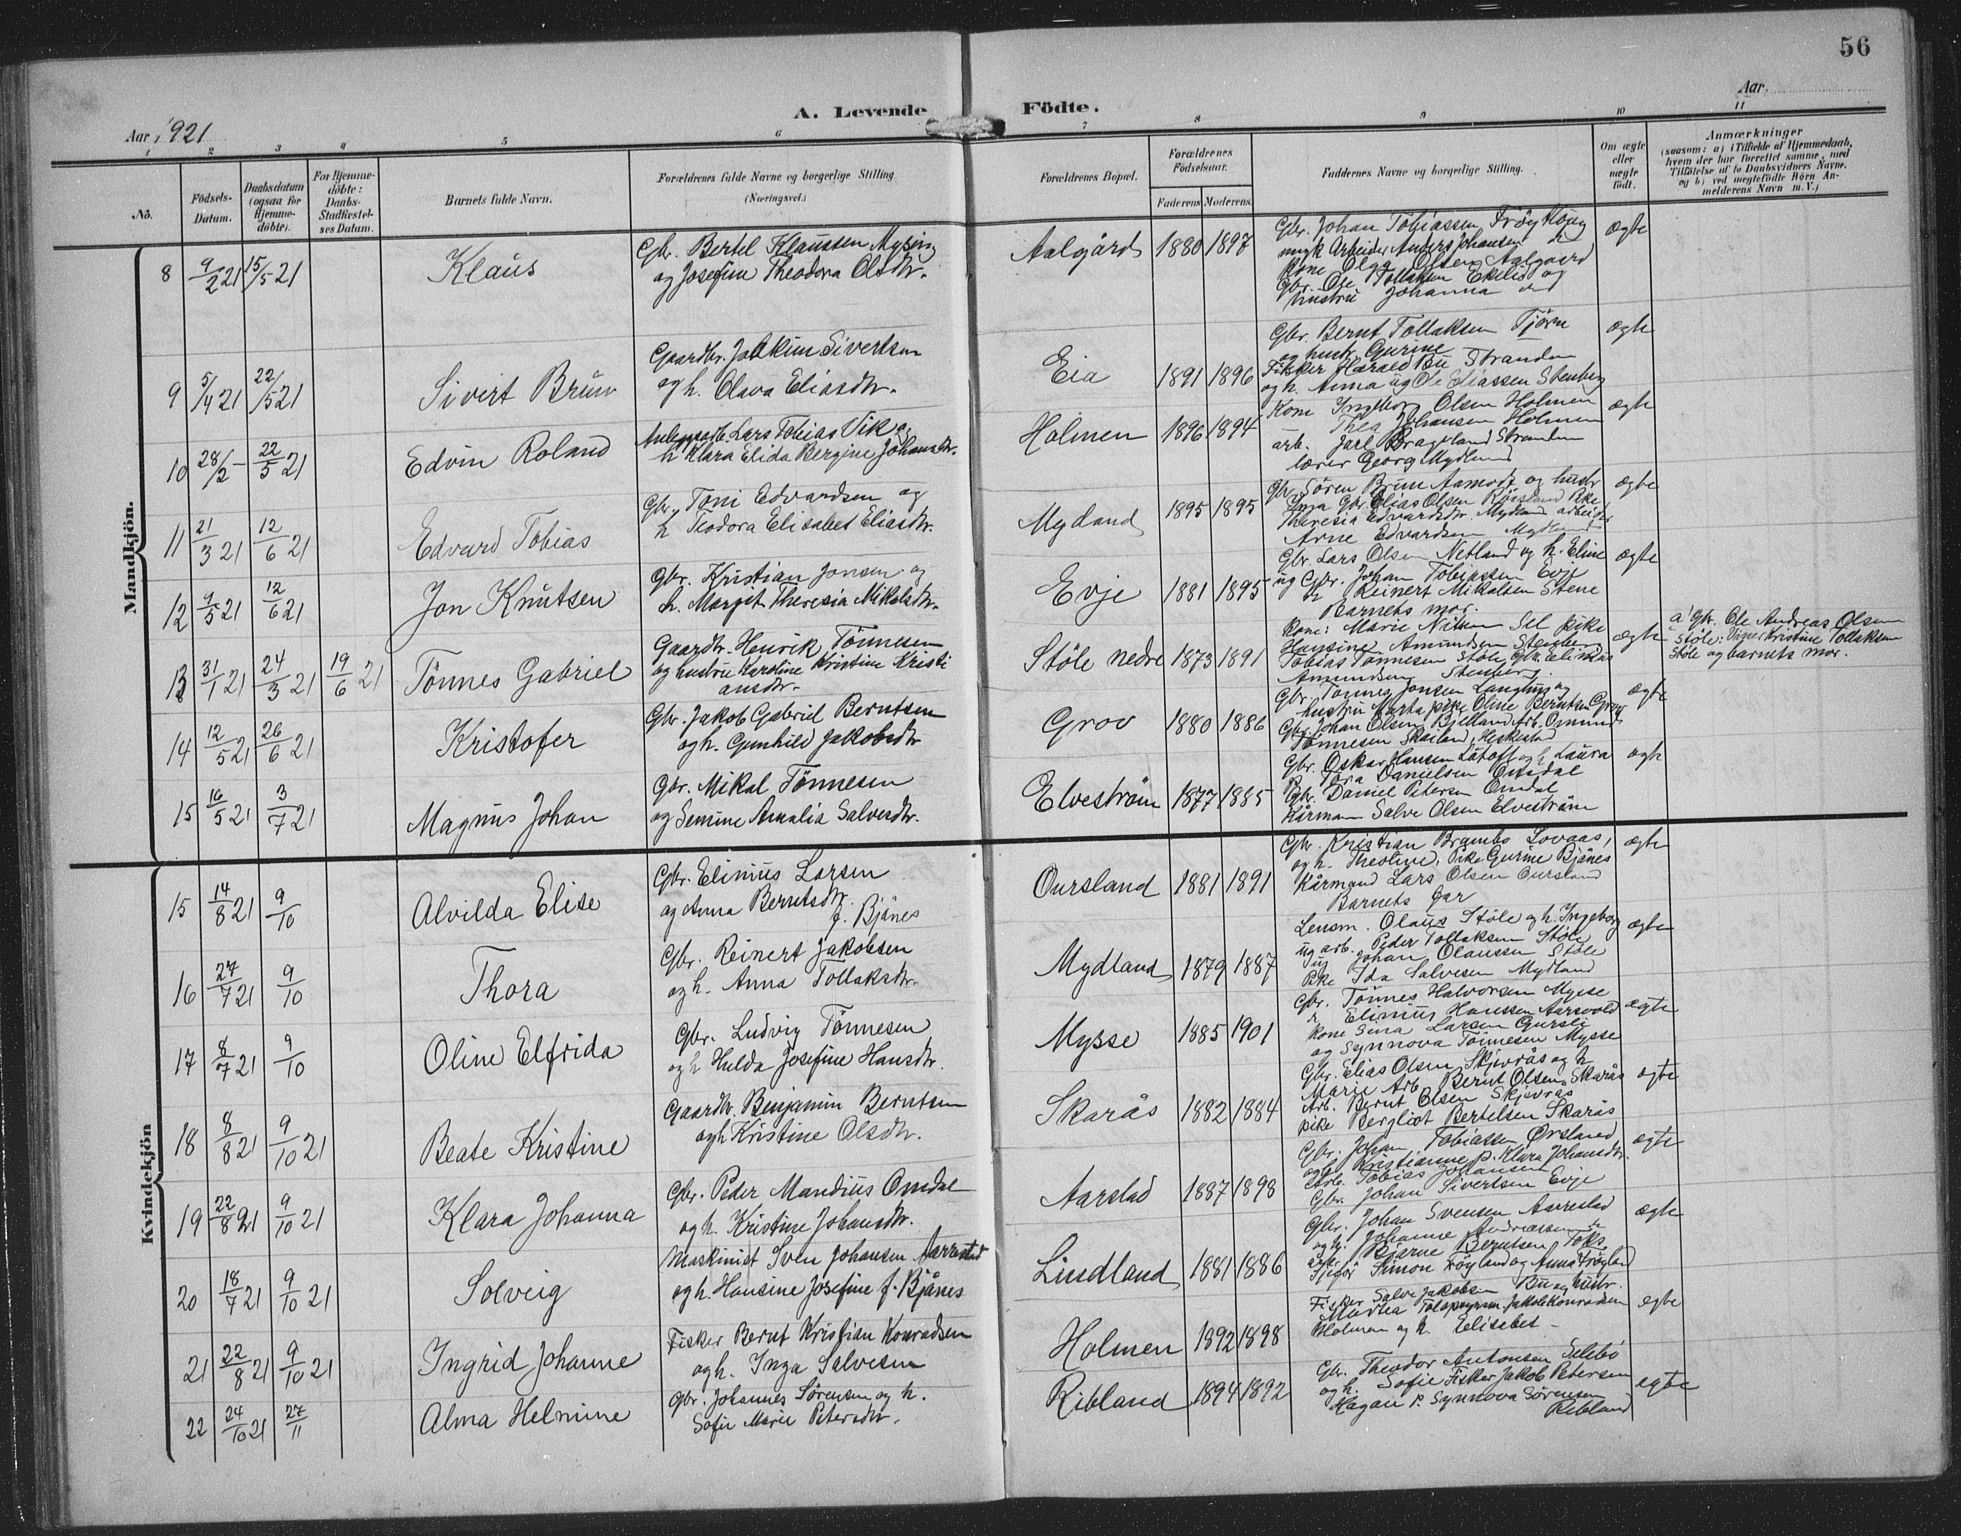 56
A. Levende Födte.
Aar 1921
Aar
1 2 3 4 5 6 7 8 9 10 11
No.
Födsels-Datum.
Daabsdatum (ogsaa for Hjemmedöbte).
For Hjemmedöbte: Daabs-Stadfæstelses Datum.
Barnets fulde Navn.
Forældrenes fulde Navne og borgerlige Stilling (Næringsvei.)
Forældrenes Bopæl.
Forældrenes Födselsaar.
Faderens Moderens
Faddernes Navne og borgerlige Stilling.
Om ægte eller uægte födt.
Anmærkninger
(saasom: a) i Tilfælde af Hjemmedaab, hvem der har forrettet samme, med Tilföielse af to Daabsvidners Navne, og b) ved uægtefödte Börn Anmelderens Navn m. V.)
Mandkjön.
8 9/2 21 15/5 21 Klaus
Gbr. Bertel Klaussen Mysing
og Josefine Theodora Olsdtr.
Aalgård 1880 1897
Gbr. Johan Tobiassen
Arbeider Anders Johansen
Kone Olga Olsen Aalgaard
Gbr. Ole Tollaksen Ekelid og
hustru Johanna
ægte
9 5/4 21 22/5 21 Sivert Brun
Gaardbr. Joakim Sivertsen
og h. Olava Eliasdtr.
Eia 1891 1896
Gbr. Bernt Tollaksen Tjörn
og hustr. Gurine
Fisker Harald Bu Stranden
og h. Anna ug Ole Eliassen Stenberg
ægte
10 28/2 - 22/5 21 Edvin Roland
Lars Tobias Vik og
h Klara Elida Bergine Johansdtr.
Holmen 1896 1894
Kone Ingeborg Olsen Holmen
Thea Johansen Holmen
arb. Jarl Brageland Stranden
lærer Georg Mydland
ægte
11 21/3 21 12/6 21 Edvard Tobias
Gbr. Toni Edvardsen og
h Teodora Elisabet Eliasdtr.
Mydland 1895 1895
Gbr. Sören Brun Aamodt og hustr
Inga Gbr. Elias Olsen Röisland Pike
Theresia Edvardsdtr. Mydland arbeider
Arne Edvardsen Mydland
ægte
12 9/5 21 12/6 21 Jon Knutsen
Gbr. Kristian Jonsen og
h. Margit Theresia Mikalsdtr.
Evje 1881 1895
Gbr. Lars Olsen Netland og h. Eline
ug Gbr. Johan Tobiassen Evje
Reinert Mikalsen Stene
Barnets mor.
ægte
13 31/1 21 24/3 21 19/6 21 Tönnes Gabriel
Gaardbr. Henrik Tönnesen
og hustru Karoline Kristine Kristi
ansdtr.
Stöle nedre 1873 1891
Kone: Marie Nilsen Sel pike
Hansine Amundsen Stenberg
Tobias Tönnesen Stöle Gbr. Elias
Amundsen Stenberg.
ægte
a) Gbr. Ole Andreas Olsen
Stöle; Kristine Tollaksen
Stöle og barnets mor.
14 12/5 21 26/6 21 Kristofer
Gbr. Jakob Gabriel Berntsen
og h. Gunhild Jakobsdtr
Grov 1880 1886
Gbr. Tönnes Jonsen Langhus og
hustru Marta pike Oline Berntsen Grov
Gbr. Johan Olsen Bjelland Arb. Omund
Tönnesen Skailand, Heskestad
ægte
15 16/5 21 3/7 21 Magnus Johan
Gbr. Mikal Tönnesen
og Semine Amalia Salvesdtr.
Elveström 1877 1885
Gbr. Oskar Hansen Låtoft og h Laura
P. Tora Danielsen Omdal
Gbr. Daniel Petersen Omdal
Kårman Salve Olsen Elveström
ægte
Kvindekjön
15 14/8 21 9/10 Alvilda Elise
Gbr. Elinius Larsen
og Anna Berntsdtr.
f. Bjånes
Oursland 1881 1891
Gbr. Kristian Brambo Lovaas,
og h. Theoline, Pike Gurine Bjånes
Kårmand Lars Olsen Oursland
Barnets far
ægte
16 27/7 21 9/10 Thora
Gbr. Reinert Jakobsen
og h. Anna Tollaksdtr.
Mydland 1879 1887
Lensm. Olaus Stöle og h. Ingeborg
ug arb. Peder Tollaksen Stöle
ug Johan Olaussen Stöle
Pike Ida Salvesen Mydland
ægte
17 8/7 21 9/10 Oline Elfrida
Gbr. Ludvig Tönnesen
og h Hulda Josefine Hansdtr.
Mysse 1885 1901
Gbr. Tönnes Halvorsen Mysse
Elinius Hanssen Aarsvold
Kone Sina Larsen Gursli
og Synnova Tönnesen Mysse
ægte
18 8/8 21 9/10 21 Beate Kristine
Gaardbr. Benjamin Berntsen
og h Kristine Olsdtr.
Skarås 1882 1884
Gbr. Elias Olsen Skjevrås og h
Marie Arb. Bernt Olsen, Skarås
Arb. Bernt Olsen Skjevrås
pike Bergliot Bertelsen Skarås
ægte
19 22/8 21 9/10 21 Klara Johanna
Gbr. Peder Mandius Omdal
og h. Kristine Johansdtr.
Aarstad 1887 1898
Gbr. Johan Tobiassen Örsland
og h Kristianne p. Klara Johansdtr.
Arb. Tobias Johansen
Gbr. Johan Sivertsen Evje
ægte
20 18/7 21 9/10 21 Solveig
Maskinist Sven Johansen Aarrestad
og h. Hansine Josefine f. Bjånes
Lindland 1881 1886
Gbr. Johan Svensen Aarrestad
og h. Johanne Andreassen
Bjarne Berntsen Toks
Simon Fröyland og Anna Fröyland
ægte
21 22/8 21 9/10 21 Ingrid Johanne
Fisker Bernt Kristian Konradsen
og h. Inga Salvesen
Holmen 1892 1898
Fisker Salve Jakobsen Bu og hustr.
Martea Jakob Konradsen
Holmen og h. Elisabet -
ægte
22 24/10 21 27/11 Alma Helmine
Gbr. Johannes Sörensen og h.
Sofie Marie Petersdtr.
Ribland 1894 1892
Gbr. Theodor Antonsen Selebö
og h. Sofie Fisker Jakob Petersen
Hågan P. Synnova Sörensen
Ribland
egte